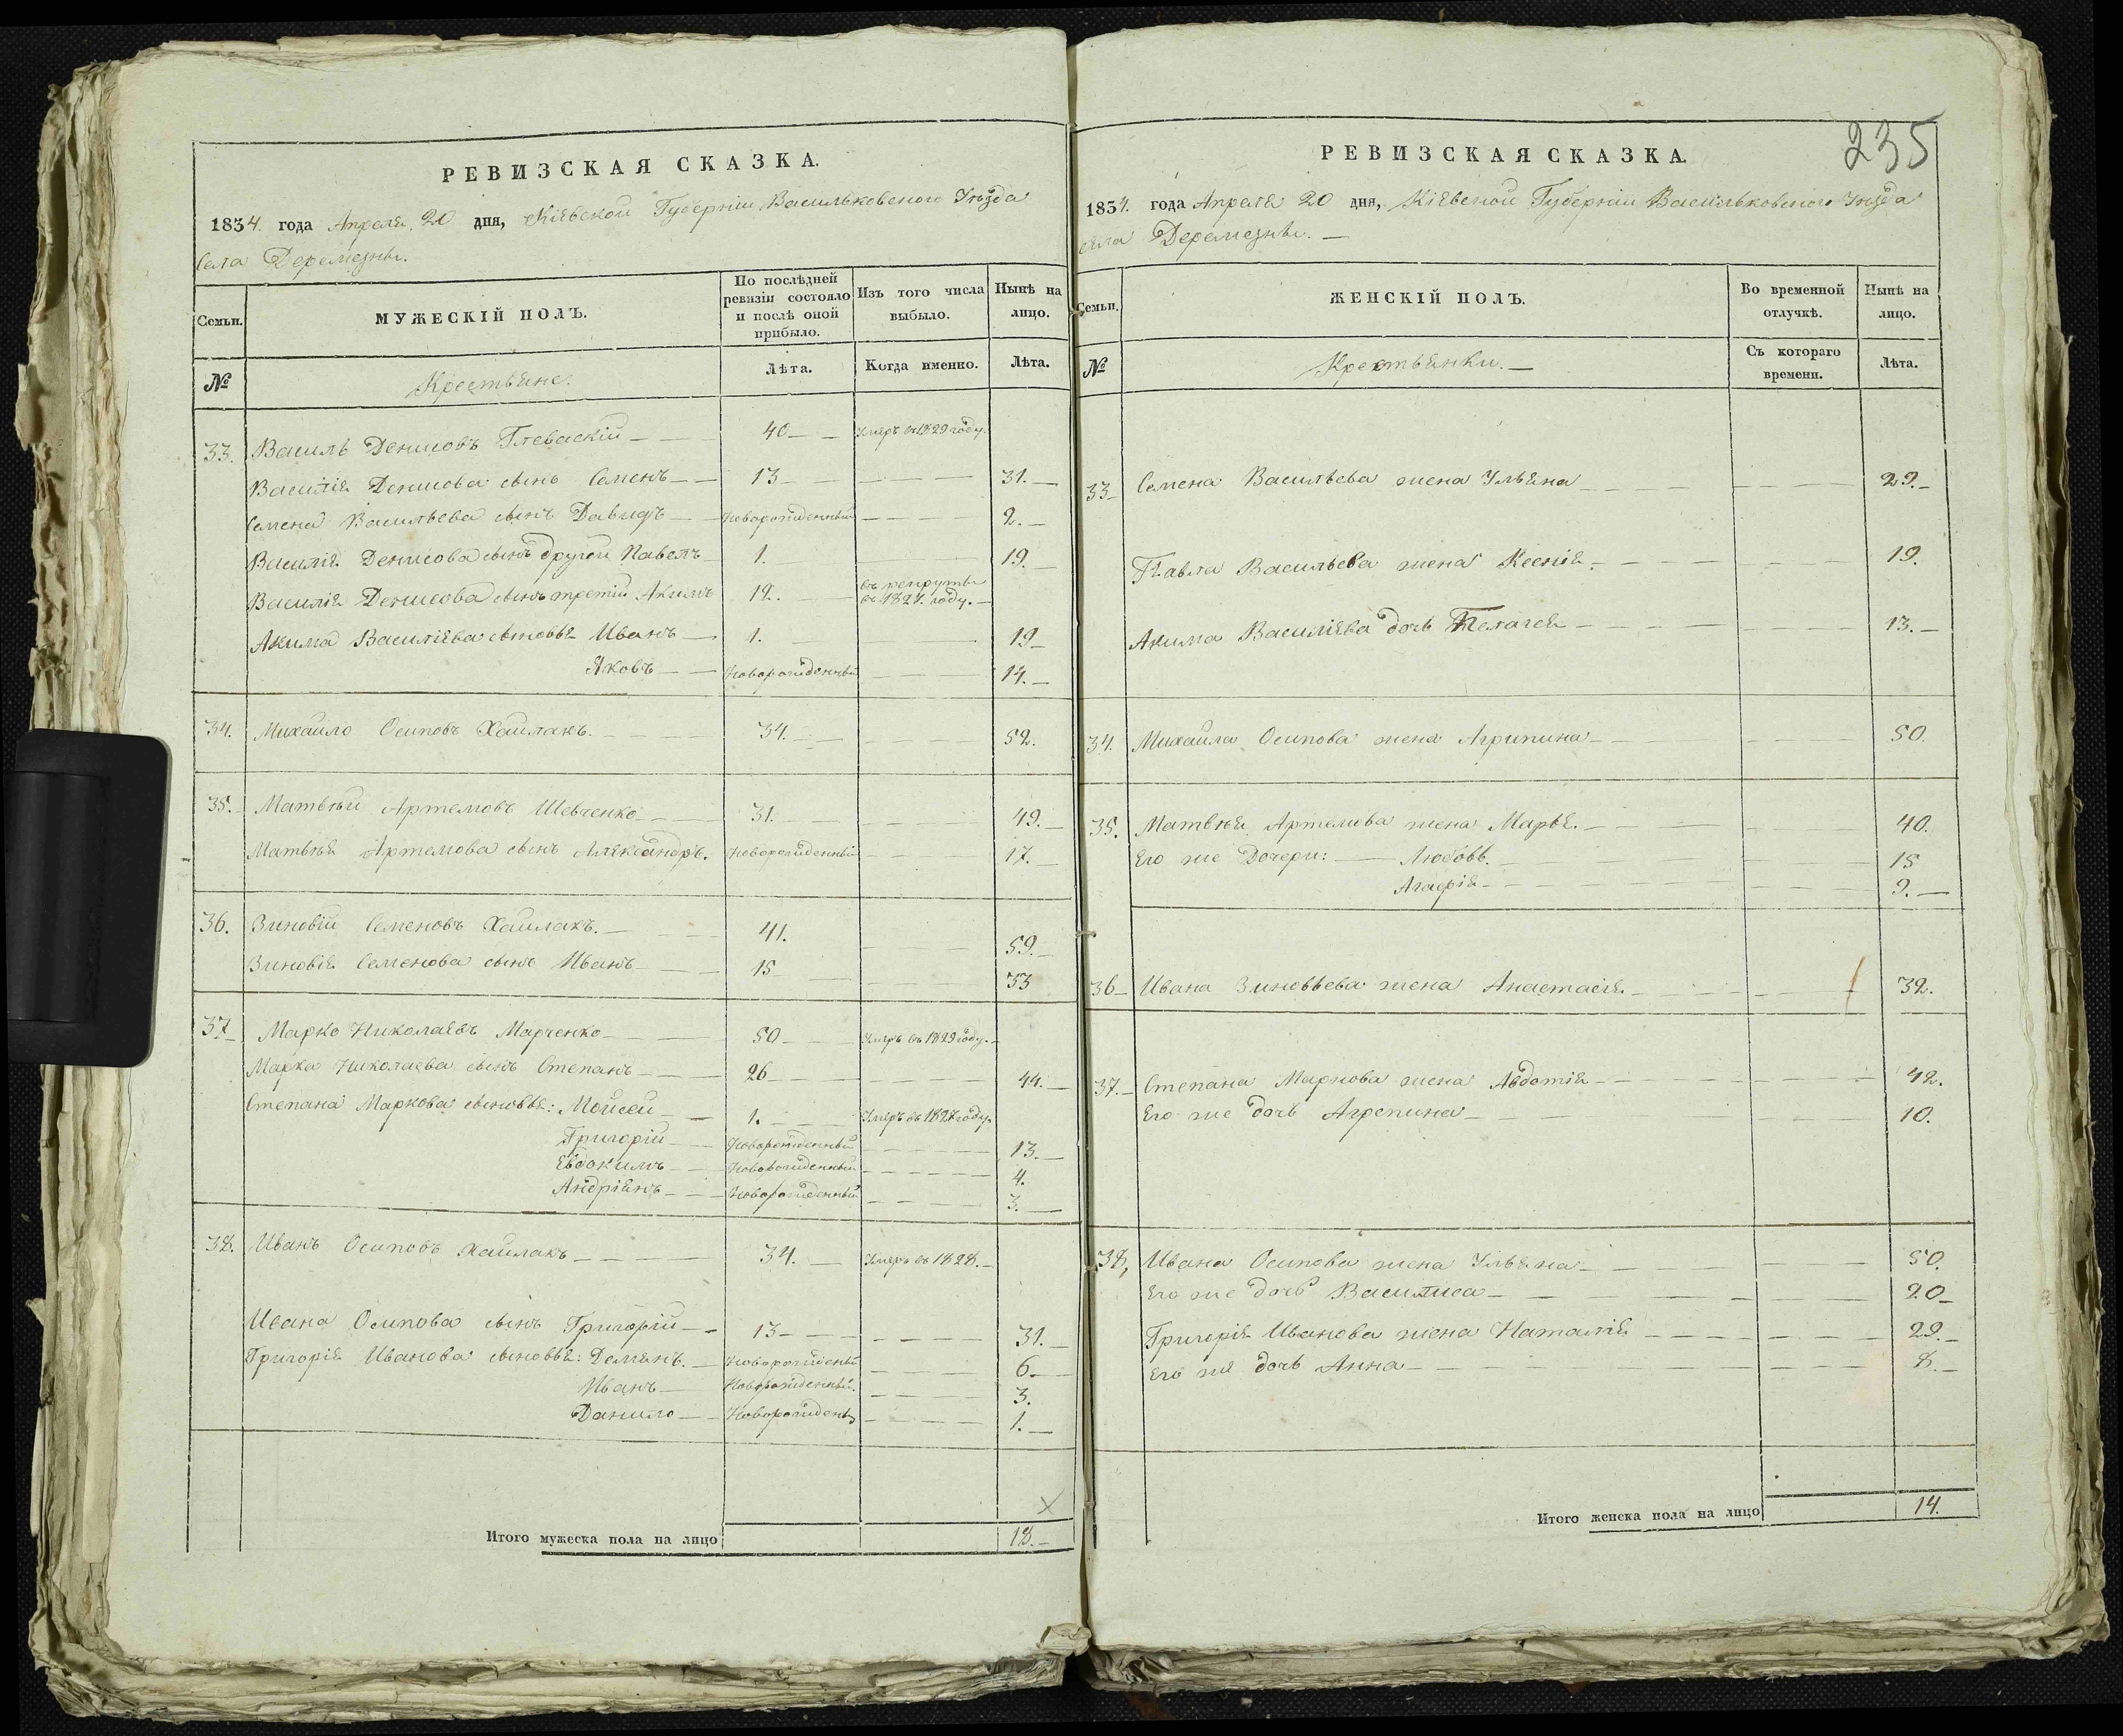 РЕВИЗСКАЯ СКАЗКА.
1834. года Апреля 20 дня, Кіевской Губерніи Васильковского Уезда
Села Деремезны.
Семьи.
МУЖЕСКІЙ ПОЛЪ.
По послѣдней ревизіи состояло и послѣ оной прибыло.
Изъ того числа выбыло.
Нынѣ на лицо.
№
Крестьяне.
Лѣта.
Когда именно.
Лѣта.
33. Василь Денисовъ 40 Умеръ въ 1829 году.
Василія Денисова сынъ Семенъ 13 31.
Семена Васильева сынъ Давидъ Новорожденный 2.
Василія Денисова сынъ другой Павелъ 1. 19.
Василія Денисова сынъ третій Акимъ 12. въ рекруты въ 1827. году.
Акима Василіева сыновья Иванъ 1. 19
Яковъ Новорожденный 14.
34. Михайло Осиповъ Хайлакъ. 34. 52.
35. Матвѣй Артемовъ Шевченко 31. 49.
Матвѣя Артемова сынъ Александръ. Новорожденный 17.
36. Зиновій Семеновъ Хайлакъ. 41. 59.
Зиновія Семенова сынъ Иванъ 15 33
37 Марко Николаевъ Марченко 50 Умеръ въ 1829 году.
Марка Николаева сынъ Степанъ 26 44.
Степана Маркова сыновья: Мойсей 1. Умеръ въ 1827 году.
Григорій Новорожденный 13.
Евдокимъ Новорожденный 4.
Андріянъ Новорожденный 3.
38. Иванъ Осиповъ Хайлакъ 34. Умеръ въ 1828.
Ивана Осипова сынъ Григорій 13 31.
Григорія Иванова сыновья: Демянъ. Новорожденый 6
Иванъ Новорожденный. 3.
Данило Новорожденъ 1.
Итого мужеска пола на лицо 18.
235
РЕВИЗСКАЯ СКАЗКА.
1834. года Апреля 20 дня, Кіевской Губерніи Васильковского Уезда
села Деремезны.
Семьи.
ЖЕНСКІЙ ПОЛЪ.
Во временной отлучкѣ.
Нынѣ на лицо.
№
Крестьянки.
Съ котораго времени.
Лѣта.
33 Семена Васильева жена Ульяна 29.
Павла Васильева жена Ксенія 19.
Акима Василіева дочь Пелагея 13.
34. Михайла Осипова жена Агрипина 50.
35. Матвѣя Артемова жена Марья. 40.
Его же Дочери: Любовь. 15
Агафія 9.
36 Ивана Зиновьева жена Анастасія. 32.
37. Степана Маркова жена Авдотія 42.
Его же дочь Агрепина 10.
38, Ивана Осипова жена Ульяна 50.
Его же дочь Василиса 20
Григорія Иванова жена Наталія 29.
Его же дочь Анна 8.
Итого женска пола на лицо 14.